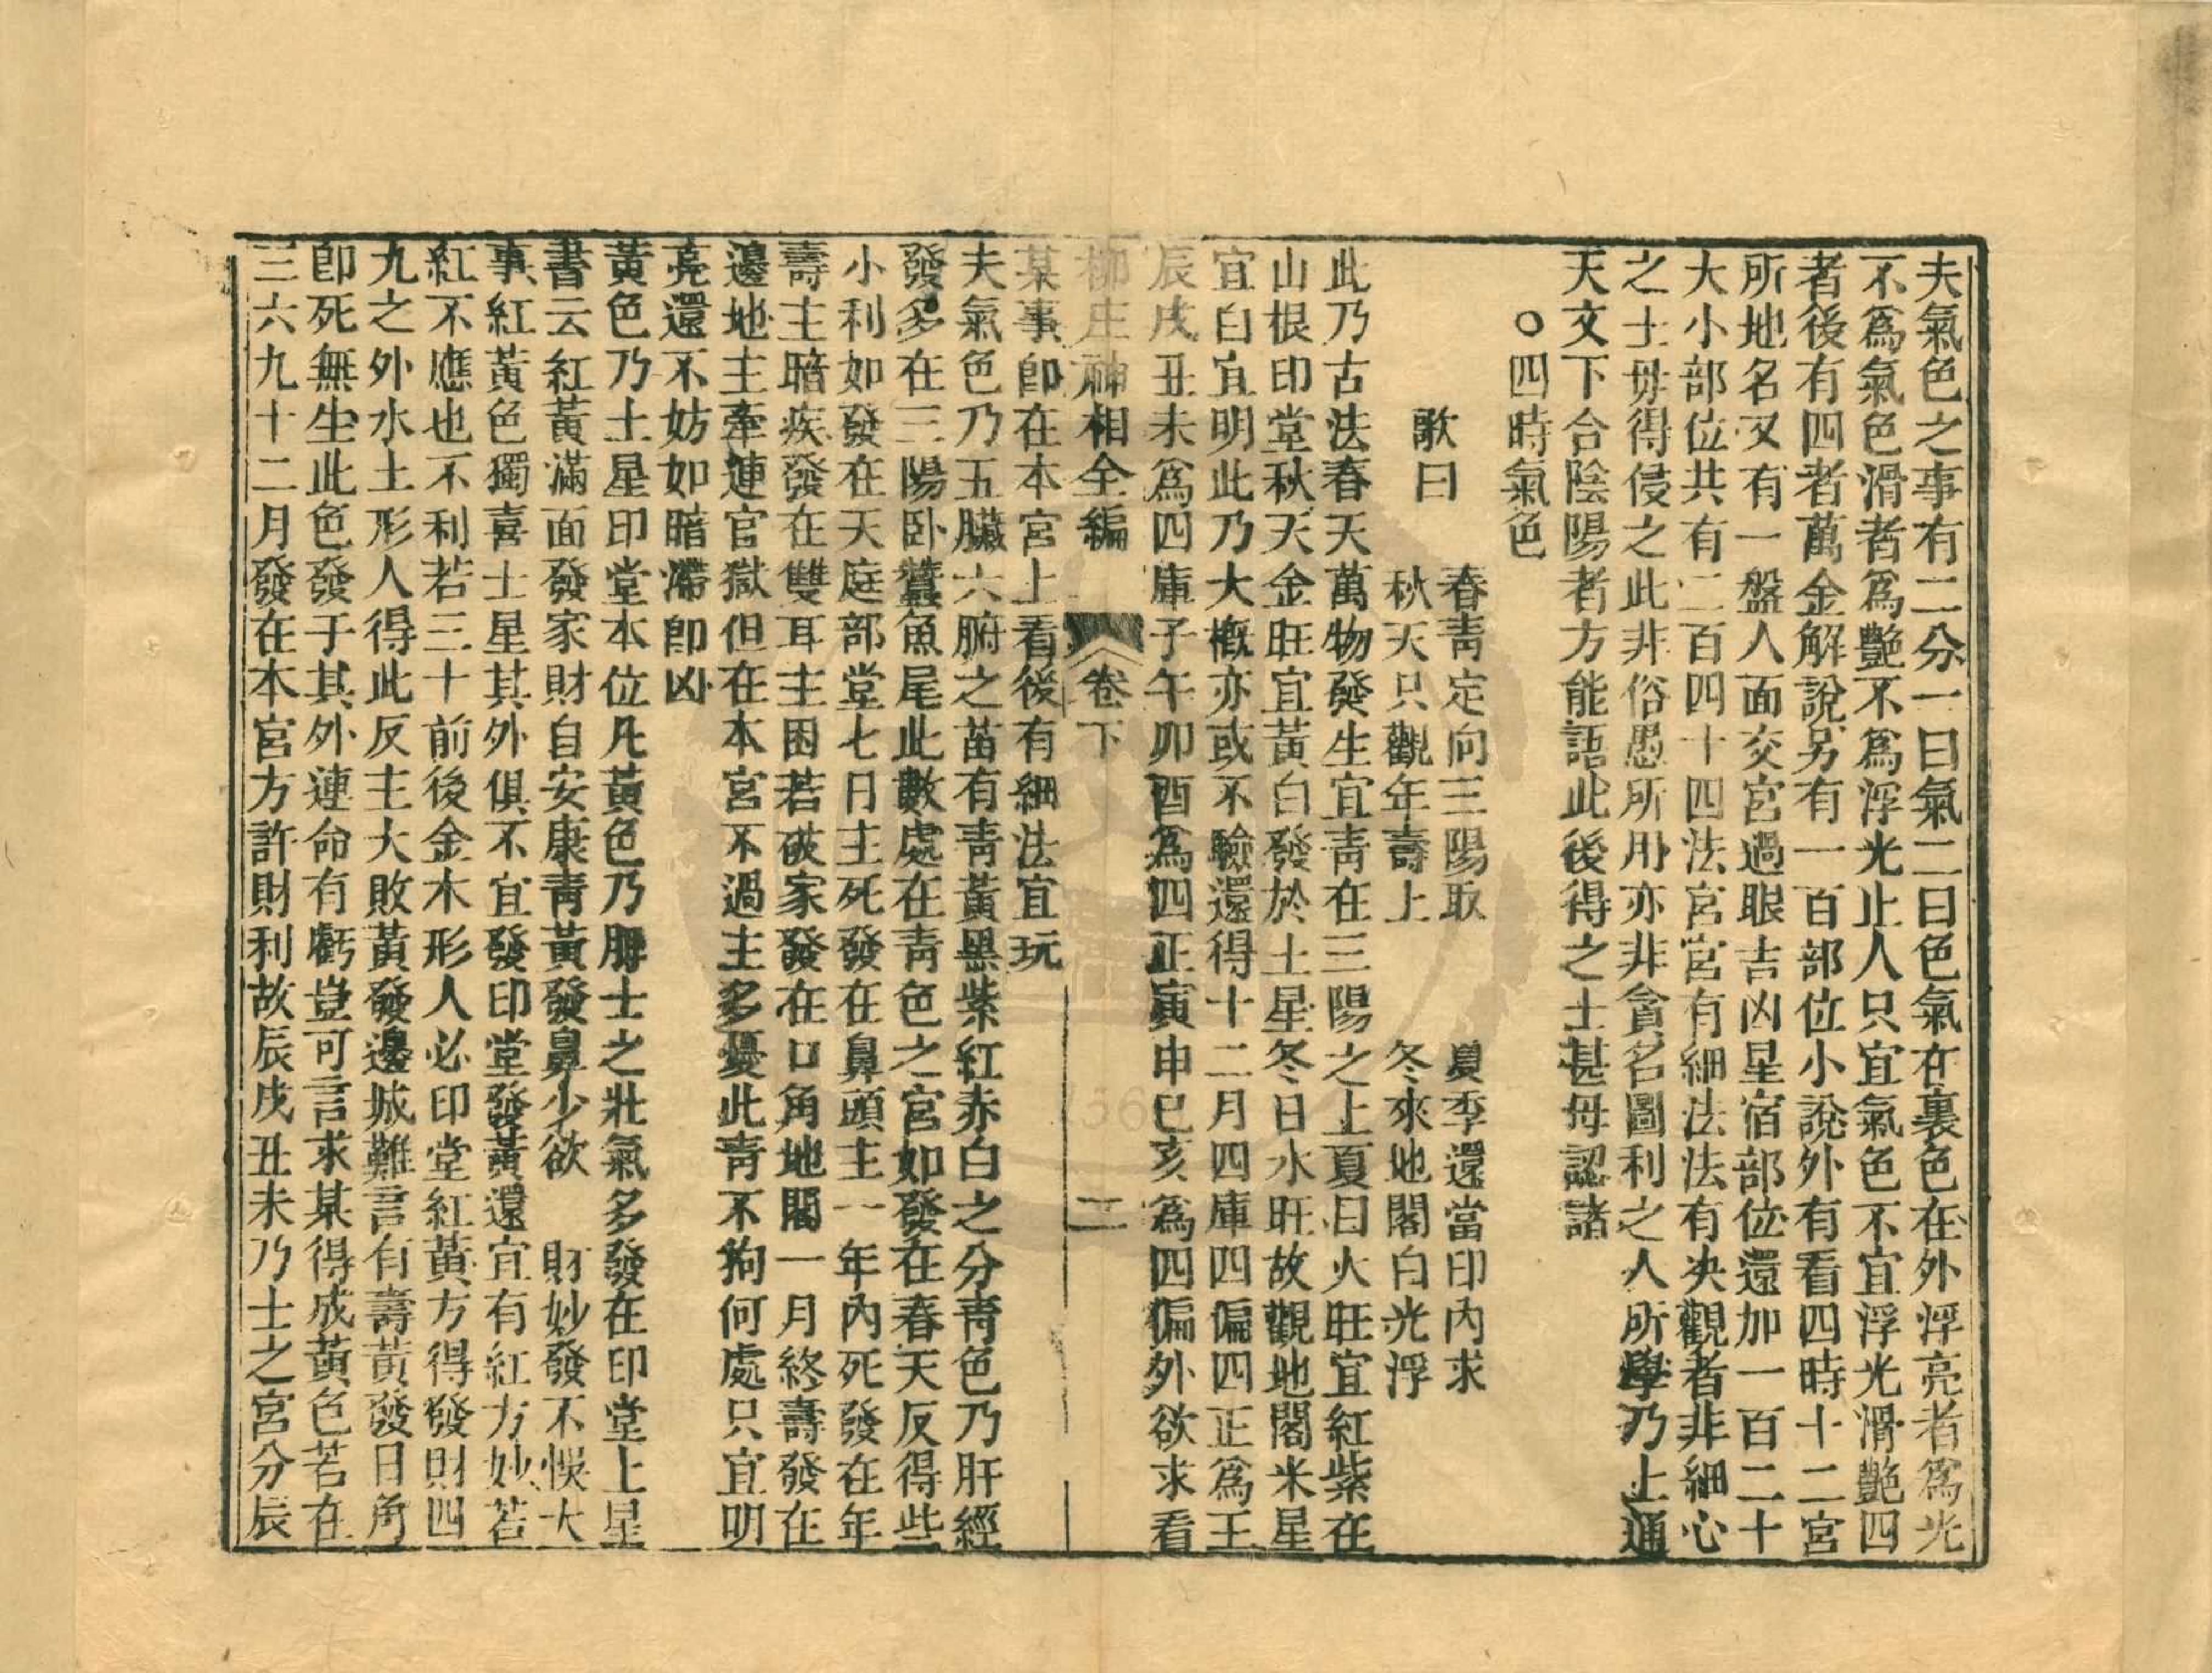 夫氣色之事有二分一曰氣二曰色氣在裏色在外浮亮者爲光
不爲氣色滑者爲艷不爲浮光止人只宜氣色不宜浮光滑艷四
者後有四者萬金解說另有一百部位小說外有看四時十二宮
所地名又有一盤人面交宮過眼吉凶星宿部位還加一百二十
大小部位共有二百四十四法宮宮有細法法有决觀者非細心
之士毋得侵之此非俗愚所用亦非貪名圖利之人所學乃上通
天文下合陰陽者方能語此後得之士甚毋認諸
○四時氣色
歌曰
春靑定向三陽取 夏季還當印內求
秋天只觀年壽上 冬來地閣白光浮
此乃古法春天萬物發生宜靑在三陽之上夏日火旺宜紅紫在
山根印堂秋天金旺宜黃白發於土星冬日水旺故觀地閣米星
宜白宜明此乃大槪亦或不驗還得十二月四庫四偏四正爲王
辰戌丑未爲四庫子午卯酉爲四正寅申巳亥爲四偏外欲求看
柳庄神相全編 卷下 二
某事卽在本宮上看後有細法宜玩
夫氣色乃五臟六腑之苗有靑黃黑紫紅赤白之分靑色乃肝經
發多在三陽卧蠶魚尾此數處在靑色之宮如發在春天反得些
小利如發在天庭部堂七日主死發在鼻頭主一年內死發在年
壽主暗疾發在雙耳主困若破家發在口角地閣一月終壽發在
邊地主牽連官獄但在本宮不過主多憂此靑不拘何處只宜明
亮還不妨如暗滯卽凶
黃色乃土星印堂本位凡黃色乃脾土之壯氣多發在印堂土星
書云紅黃滿面發家財自安康靑黃發鼻少欲 財妙發不悞大
事紅黃色獨喜土星其外俱不宜發印堂發黃還宜有紅方妙若
紅不應也不利若三十前後金木形人必印堂紅黃方得發財四
九之外水土形人得此反主大敗黃發邊城難言有壽黃發日角
卽死無生此色發于其外連命有虧豈可言求某得成黃色若在
三六九十二月發在本宮方許財利故辰戌丑未乃士之宮分辰